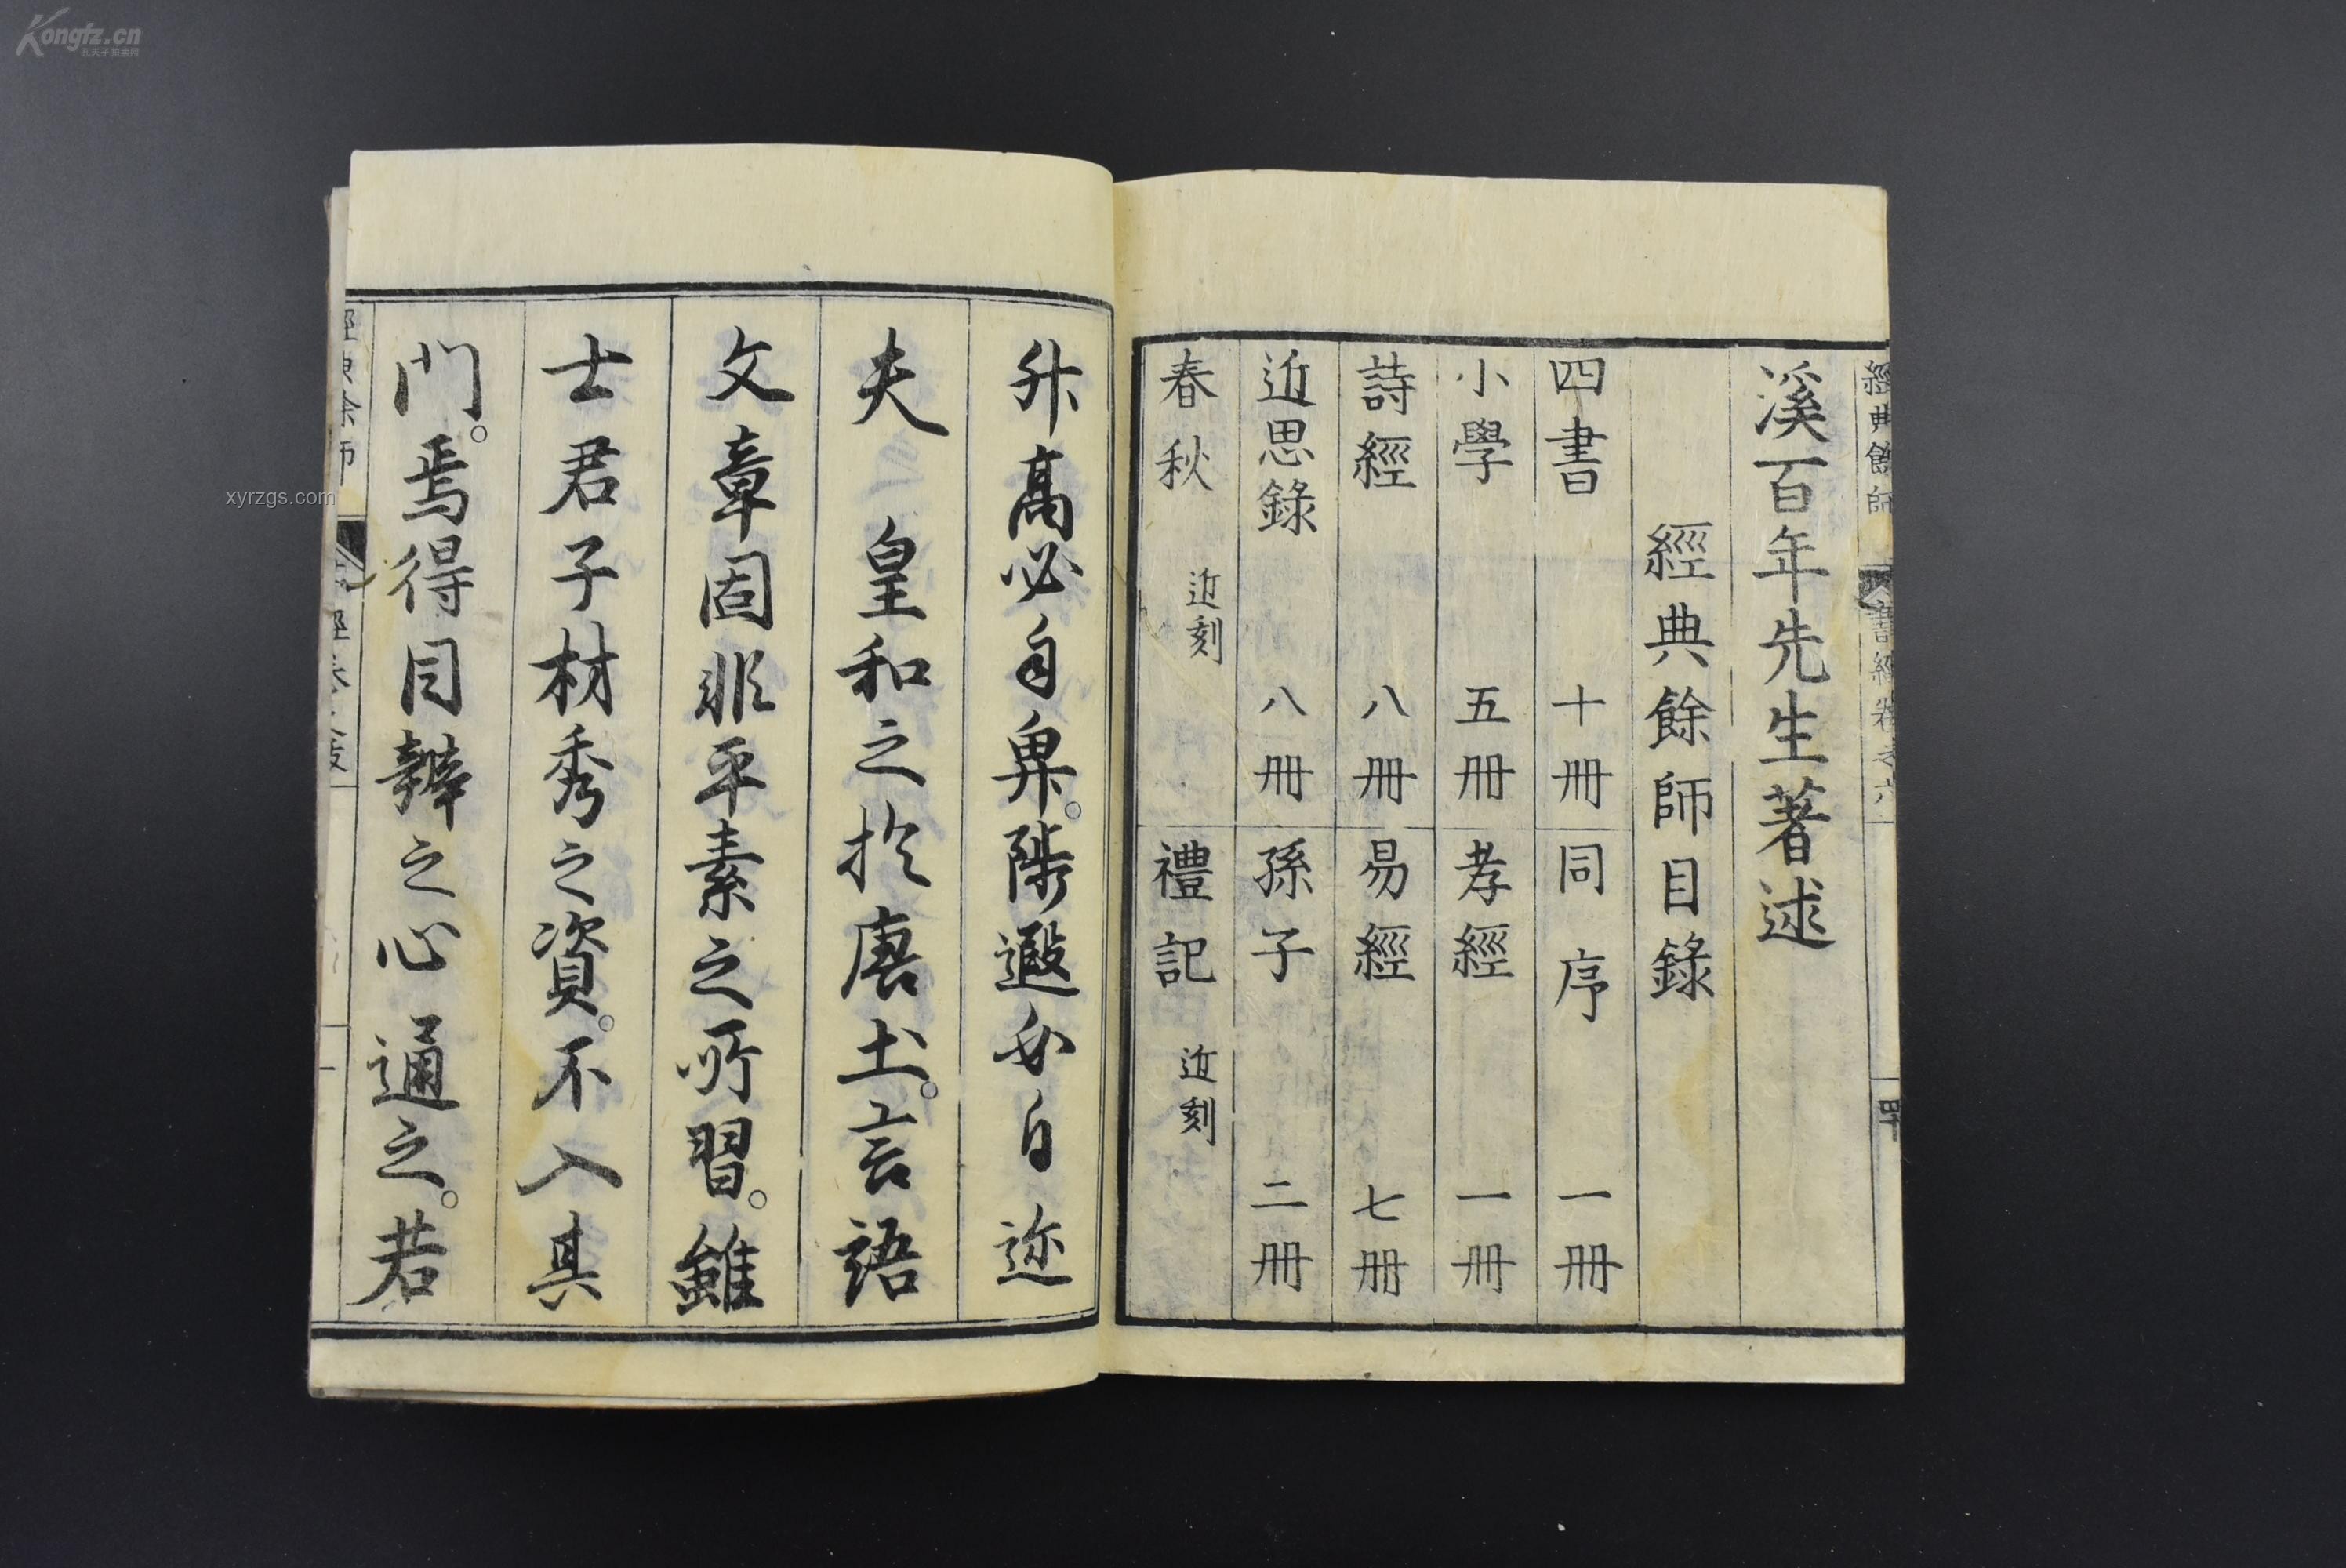 Kongfz.cn
孔夫子拍卖网
xyrzgs.com
經典餘師
書經卷之六
四十
溪百年先生著述
經典餘師目錄
四書 十冊 同序 一冊
小學 五冊 孝經 一冊
詩經 八冊 易經 七冊
近思錄 八冊 孫子 二冊
春秋 近刻 禮記 近刻
升高必自卑。陟遐必自迩
夫 皇和之於唐土。言語
文章固非平素之所習。雖
士君子材秀之資。不入其
門。焉得目辨之心通之。若